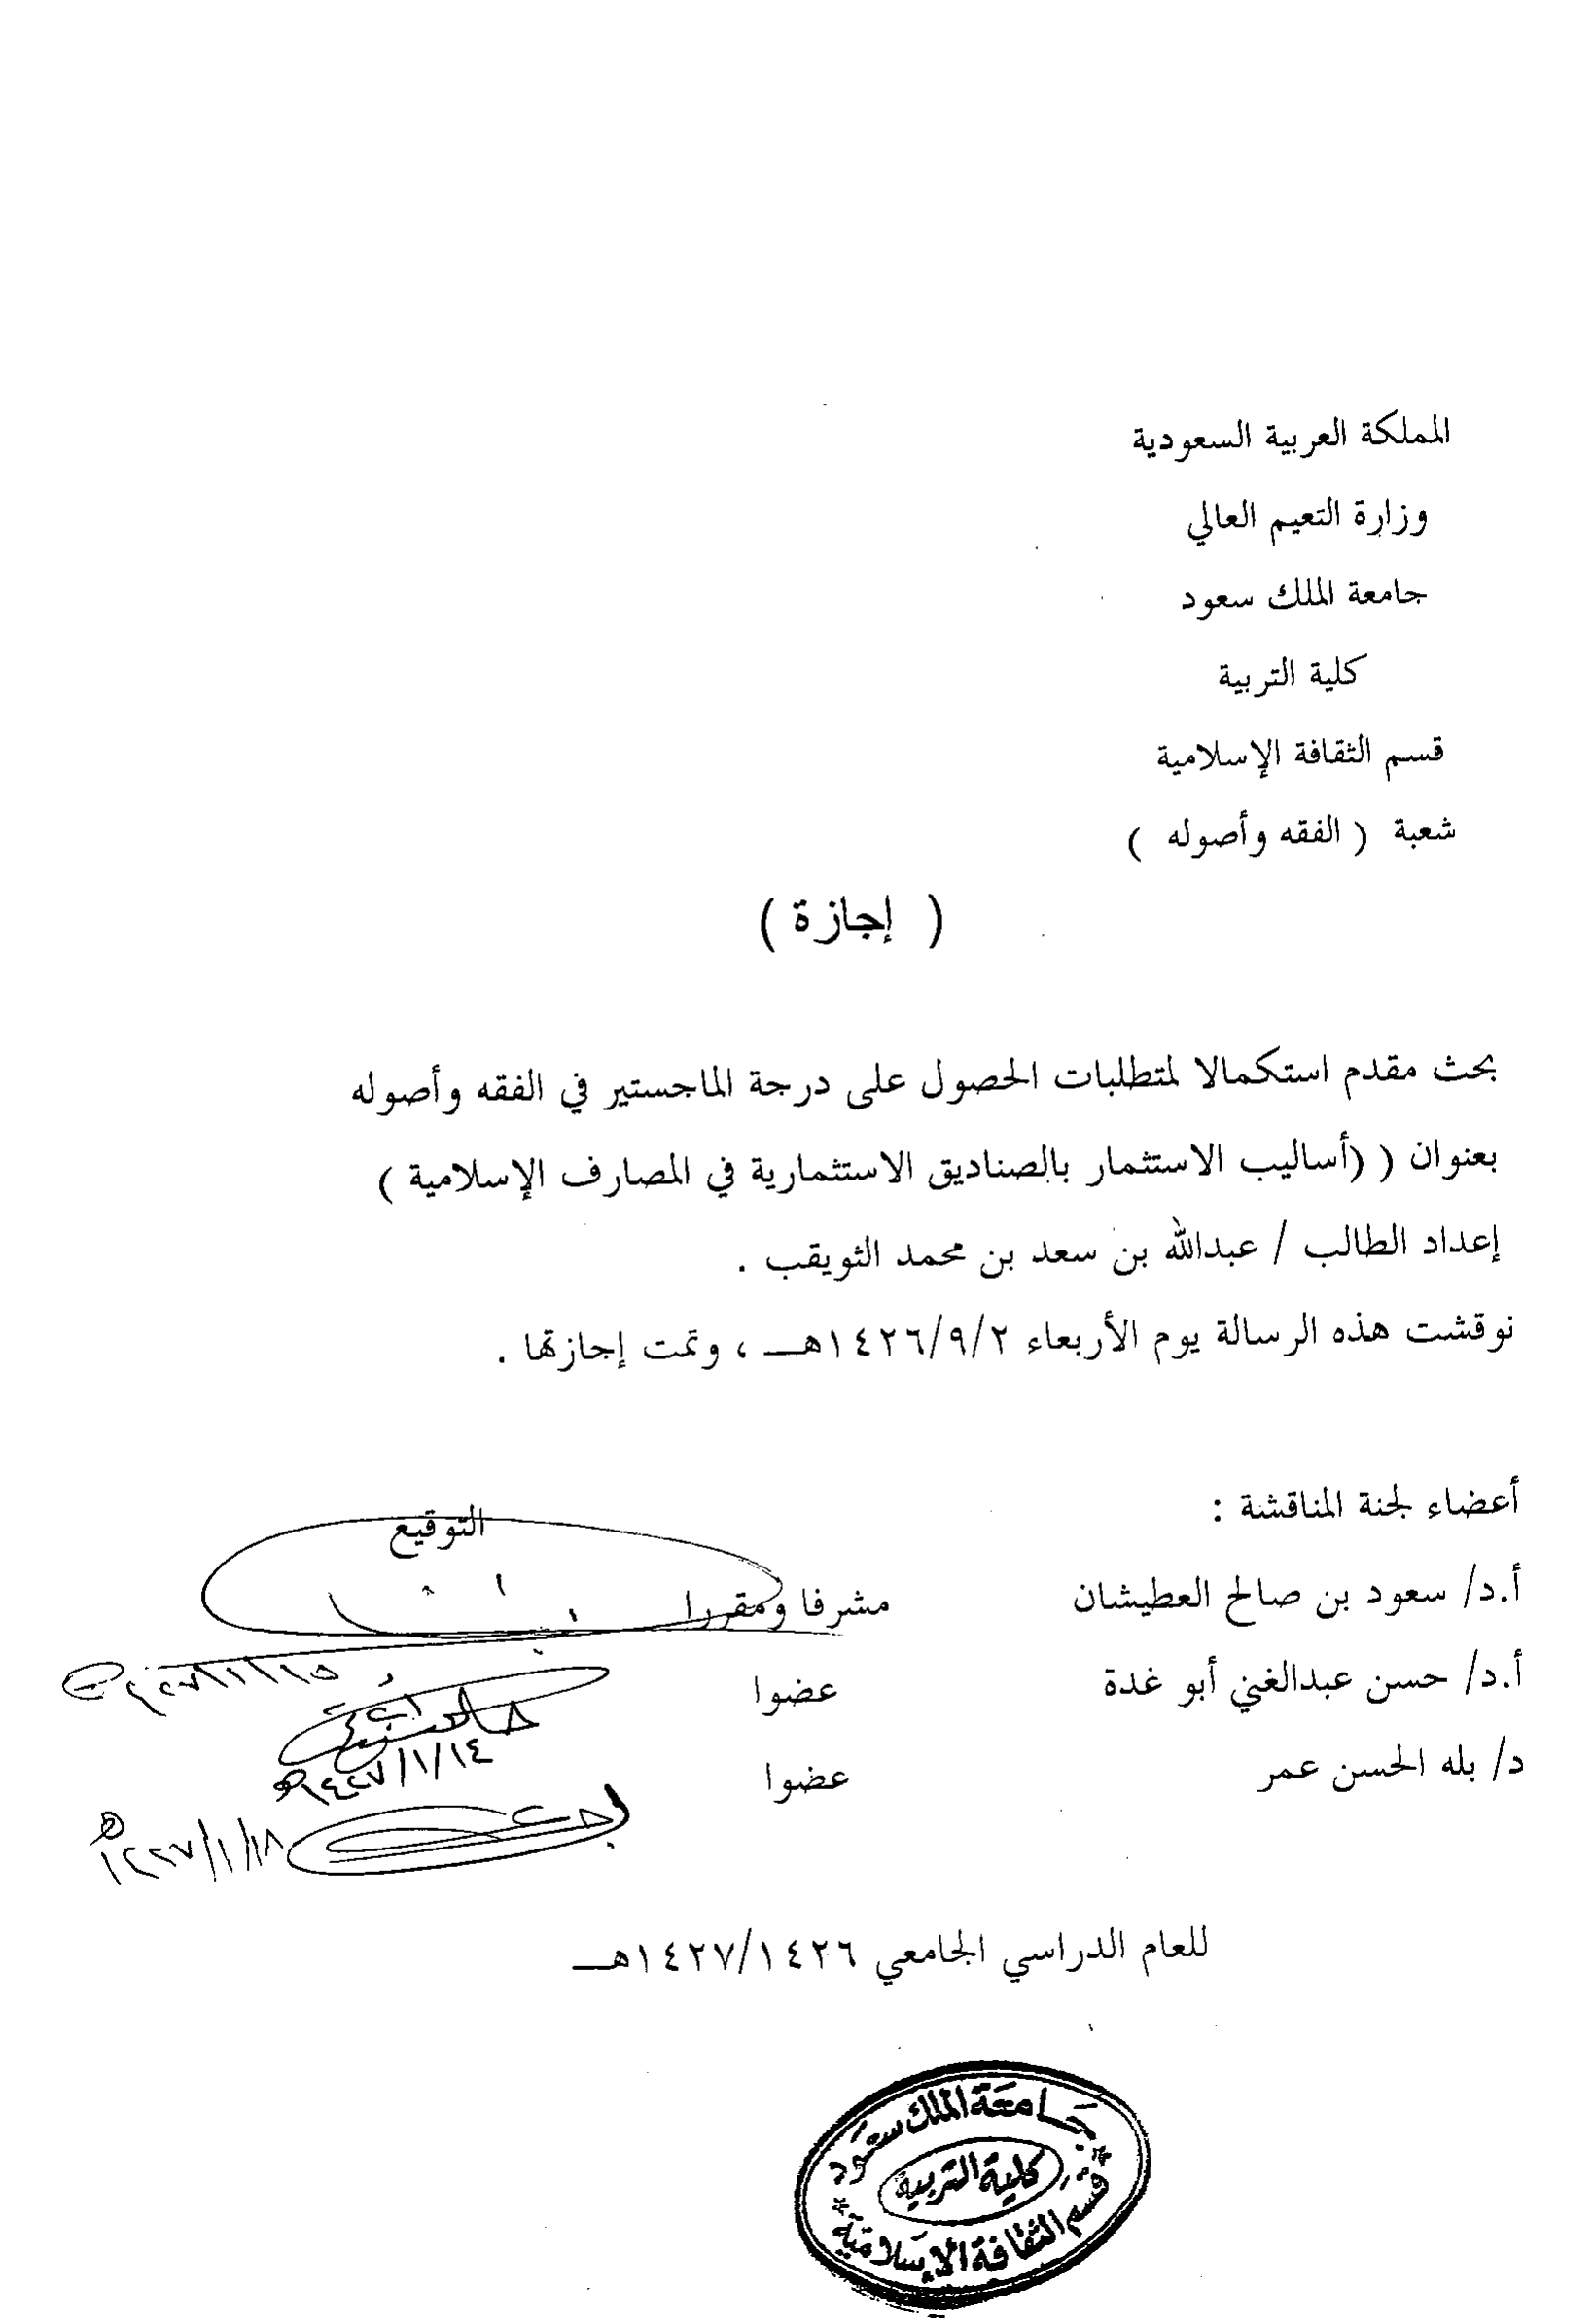 المملكة العربية السعودية
وزارة التعيم العالي
جامعة الملك سعود
كلية التربية
قسم الثقافة الإسلامية
شعبة ( الفقه وأصوله )
( إجازة )
بحث مقدم استكمالا لمتطلبات الحصول على درجة الماجستير في الفقه وأصوله
بعنوان ( (أساليب الاستثمار بالصناديق الاستثمارية في المصارف الإسلامية )
إعداد الطالب / عبدالله بن سعد بن محمد الثويقب .
نوقشت هذه الرسالة يوم الأربعاء ١٤٢٦/٩/٢هـــ ، وتمت إجازتها .
أعضاء لجنة المناقشة :
التوقيع
أ.د/ سعود بن صالح العطيشان مشرفا ومقررا
أ.د/ حسن عبدالغني أبو غدة عضوا
١٤٢٧/١/١٤هـ
د/ بله الحسن عمر عضوا
١٤٢٧/١/١٨هـ
للعام الدراسي الجامعي ١٤٢٧/١٤٢٦هـــ
جامعة الملك سعود
كلية التربية
قسم الثقافة الإسلامية